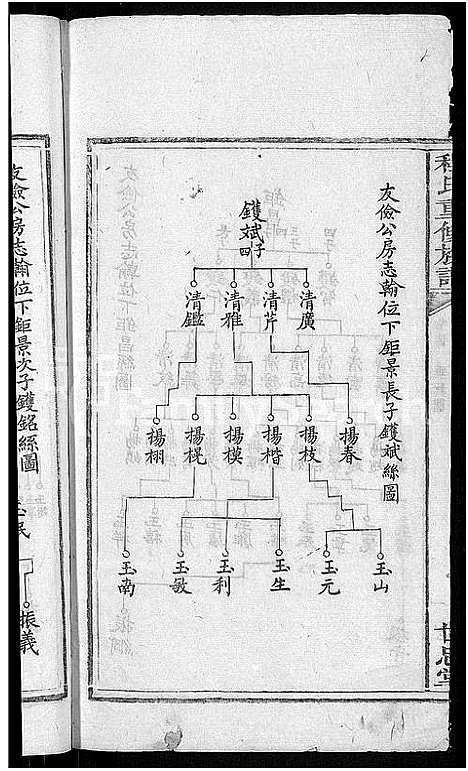 程氏重修族譜
世忠堂
友儉公房志瀚位下鉅景長子鑊斌絲圖
鑊斌
四子
清廣
清芹
清雅
清鑑
揚春
揚枝
揚楷
揚模
揚榥
揚栩
玉山
玉元
玉生
玉利
玉敏
玉南
友儉公房志瀚位下鉅景次子鑊銘絲圖
振義